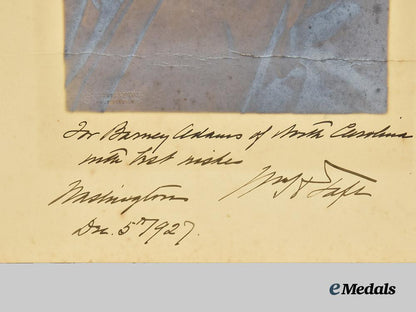 For Barney Adams of North Carolina
with best wishes
Wm H Taft
Washington
Dec. 5th 1927.
eMedals